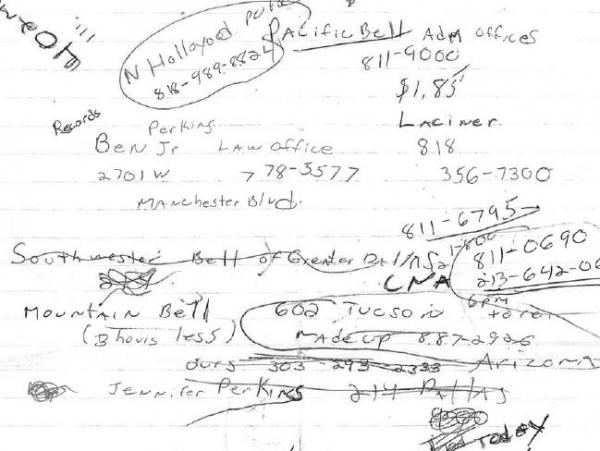 N Hollywood
818-989-8824
Pacific Bell Adm Offices
811-9000
$1.85
Laciner
818
356-7300
Records
Perkins
Ben Jr Law office
2701 W 778-5577
Manchester Blvd.
811-6795
Southwester Bell of Greater Dallas
1-800
811-0690
213-642-06
CNA
6pm
Mountain Bell 602 Tucson
(3 hours less) made up 887-2926
ours 303-293-2333 Arizona
Jennifer Perkins 214 Dallas
Today